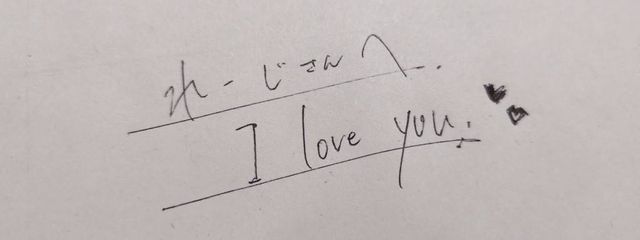 れーじさんへ.
I love you.